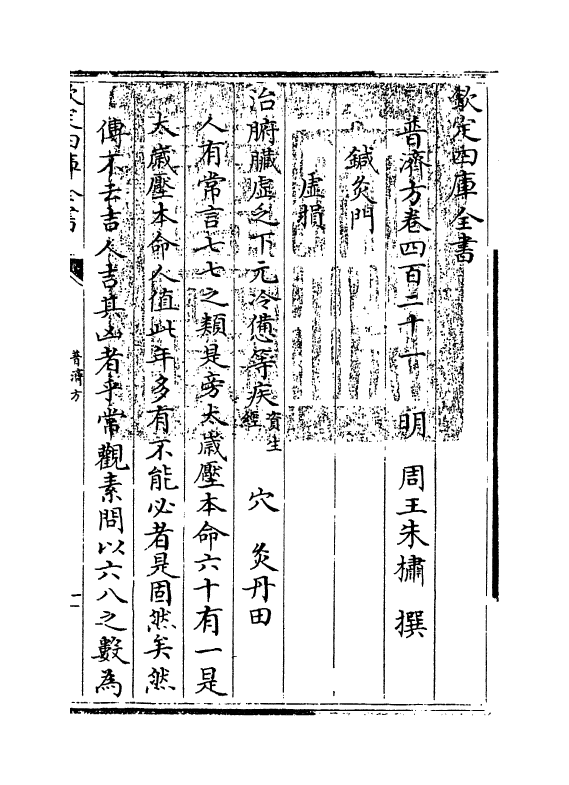 欽定四庫全書
普濟方卷四百二十一　明　周王朱橚　撰
鍼灸門
虛損
治腑臟虛乏下元冷憊等疾資生經　穴　灸丹田
人有常言七七之類是旁太歲壓本命六十有一是
太歲壓本命人值此年多有不能必者是固然矣然
傳不云吉人吉其凶者乎常觀素問以六八之數為
欽定四庫全書
普濟方
一